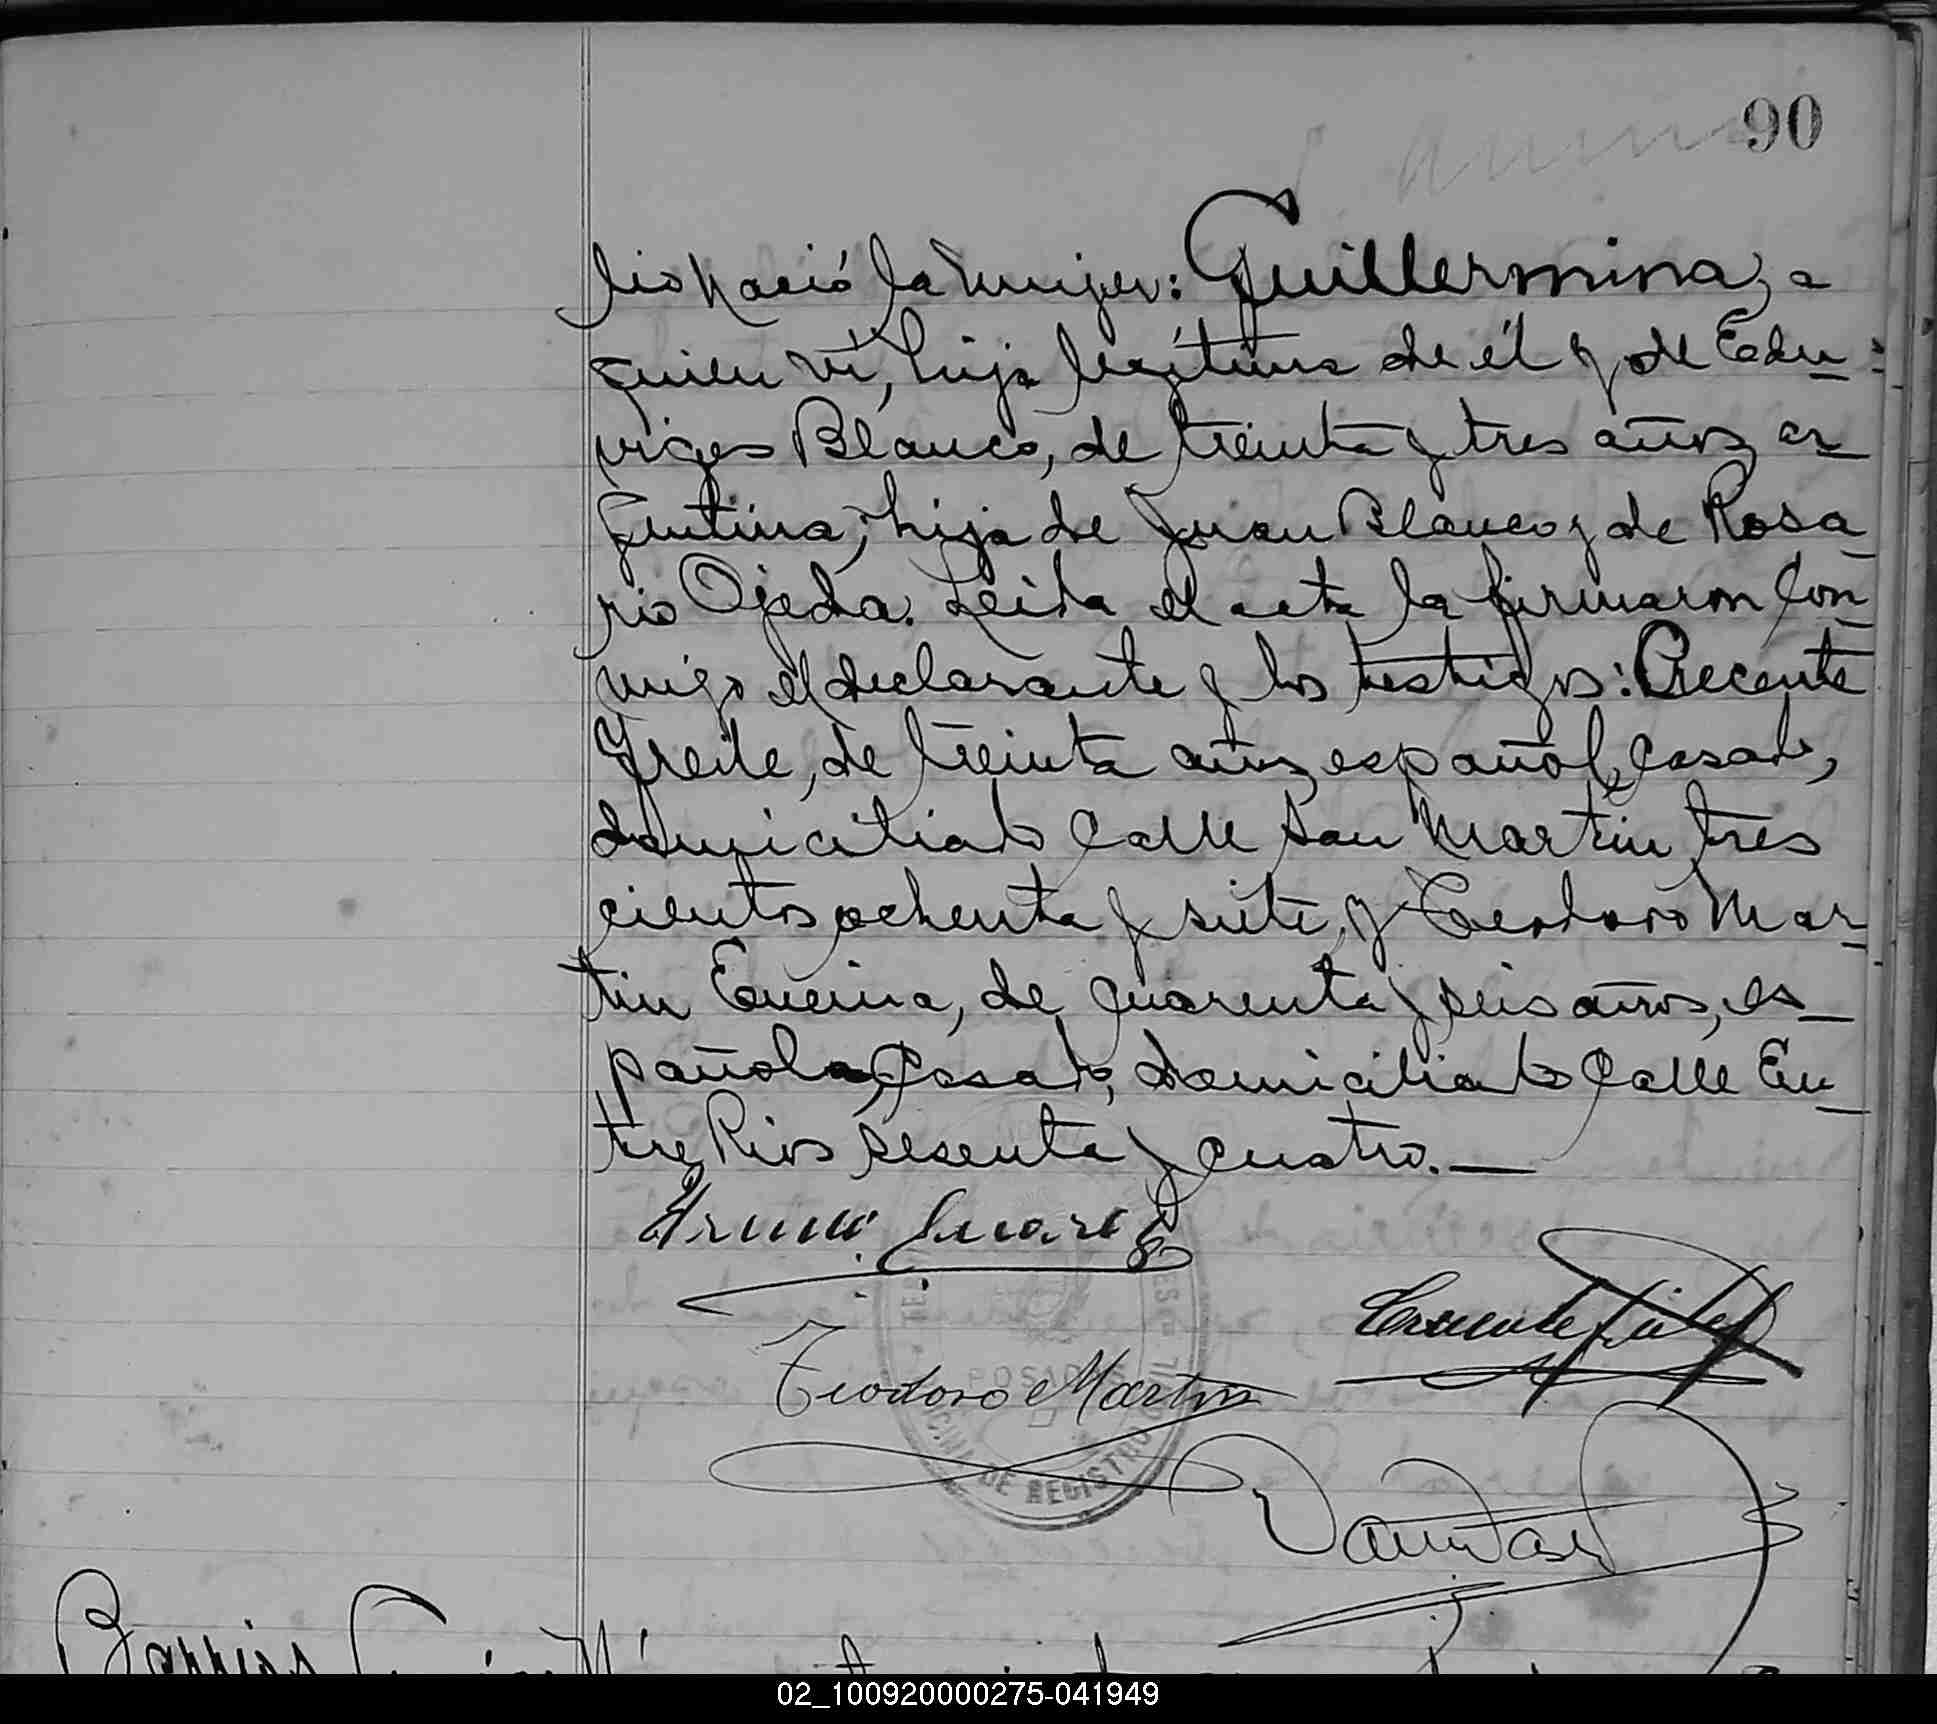 90
lio nació la mujer: Guillermina, a
quien ví, hija legítima de él y de Edu-
viges Blanco, de treinta y tres años, ar-
gentina, hija de Juan Blanco y de Rosa-
rio Ojeda. Leida el acta la firmaron con-
migo el declarante y los testigos: Crecente
Freile, de treinta años, español, casado,
domiciliado calle San Martin tres
cientos ochenta y siete, y Teodoro Mar-
tin Encina, de cuarenta y seis años, es-
pañol, casado, domiciliado calle En-
tre Rios sesenta y cuatro.—
Suarez
Teodoro Martin
POSADAS
OFICINA DE REGISTRO CIVIL
Barrios
02_100920000275-041949